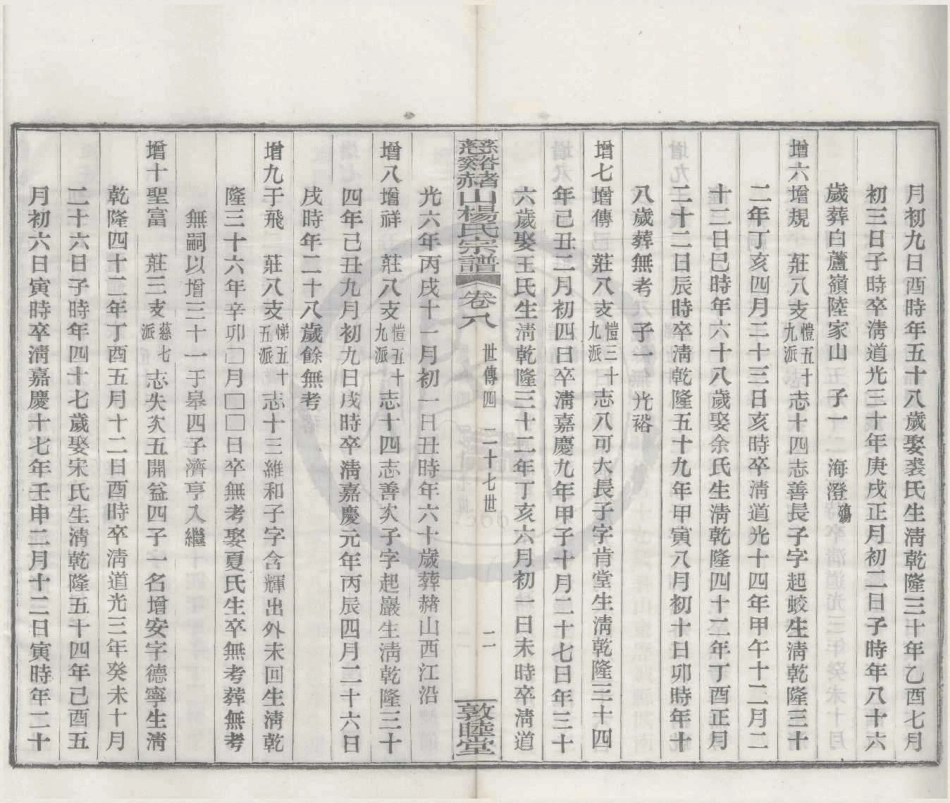 月初九日酉時年五十八歲娶裘氏生淸乾隆三十年乙酉七月
初三日子時卒淸道光三十年庚戌正月初二日子時年八十六
歲葬白蘆嶺陸家山 子一 海澄殤
增六增規 莊八支愷五十九派志十四志善長子字起蛟生淸乾隆三十
二年丁亥四月二十三日亥時卒淸道光十四年甲午十二月二
十三日巳時年六十八歲娶余氏生淸乾隆四十二年丁酉正月
二十二日辰時卒淸乾隆五十九年甲寅八月初十日卯時年十
八歲葬無考 子一 光裕
增七增傳 莊八支愷三十九派志八可大長子字肯堂生淸乾隆三十四
年己丑二月初四日卒淸嘉慶九年甲子十月二十七日年三十
六歲娶王氏生淸乾隆三十二年丁亥六月初一日未時卒淸道
慈谿赭山楊氏宗譜 卷八 世傳四 二十七世 二 敦睦堂
光六年丙戌十一月初一日丑時年六十歲葬赭山西江沿
增八增祥 莊八支愷五十九派志十四志善次子字起巖生淸乾隆三十
四年己丑九月初九日戌時卒淸嘉慶元年丙辰四月二十六日
戌時年二十八歲餘無考
增九于飛 莊八支悌五十五派志十三維和子字含輝出外未回生淸乾
隆三十六年辛卯□月□□日卒無考娶夏氏生卒無考葬無考
無嗣以增三十一于皋四子濟亨入繼
增十聖富 莊三支慈七派志失次五開益四子一名增安字德寧生淸
乾隆四十二年丁酉五月十二日酉時卒淸道光三年癸未十月
二十六日子時年四十七歲娶宋氏生淸乾隆五十四年己酉五
月初六日寅時卒淸嘉慶十七年壬申二月十二日寅時年二十